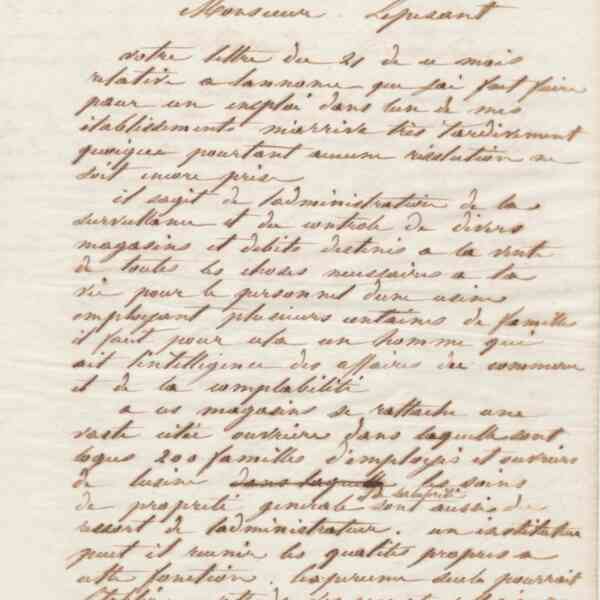 Monsieur Lepesant
votre lettre du 21 de ce mois
relative a lannonce que jai fait faire
pour un emploi dans lun de mes
établissements m'arrive très tardivement
quoique pourtant aucune résolution ne
soit encore prise
il sagit de ladministration de la
surveillance et du controle de divers
magasins et debits destinés a la vente
de toutes les choses necessaires a la
vie pour le personnel dune usine
employant plusieurs centaines de familles
il faut pour cela un homme qui
ait l'intelligence des affaires du commerce
et de la comptabilité
a ces magasins se rattache une
vaste cité ouvriere dans laquelle sont
logés 200 familles d'employés et ouvriers
de lusine dans laquelle les soins
de propreté generale et de salubrité sont aussi du
ressort de ladministrateur. un instituteur
peut il reunir les qualités propres a
cette fonction. lexperience seule pourrait